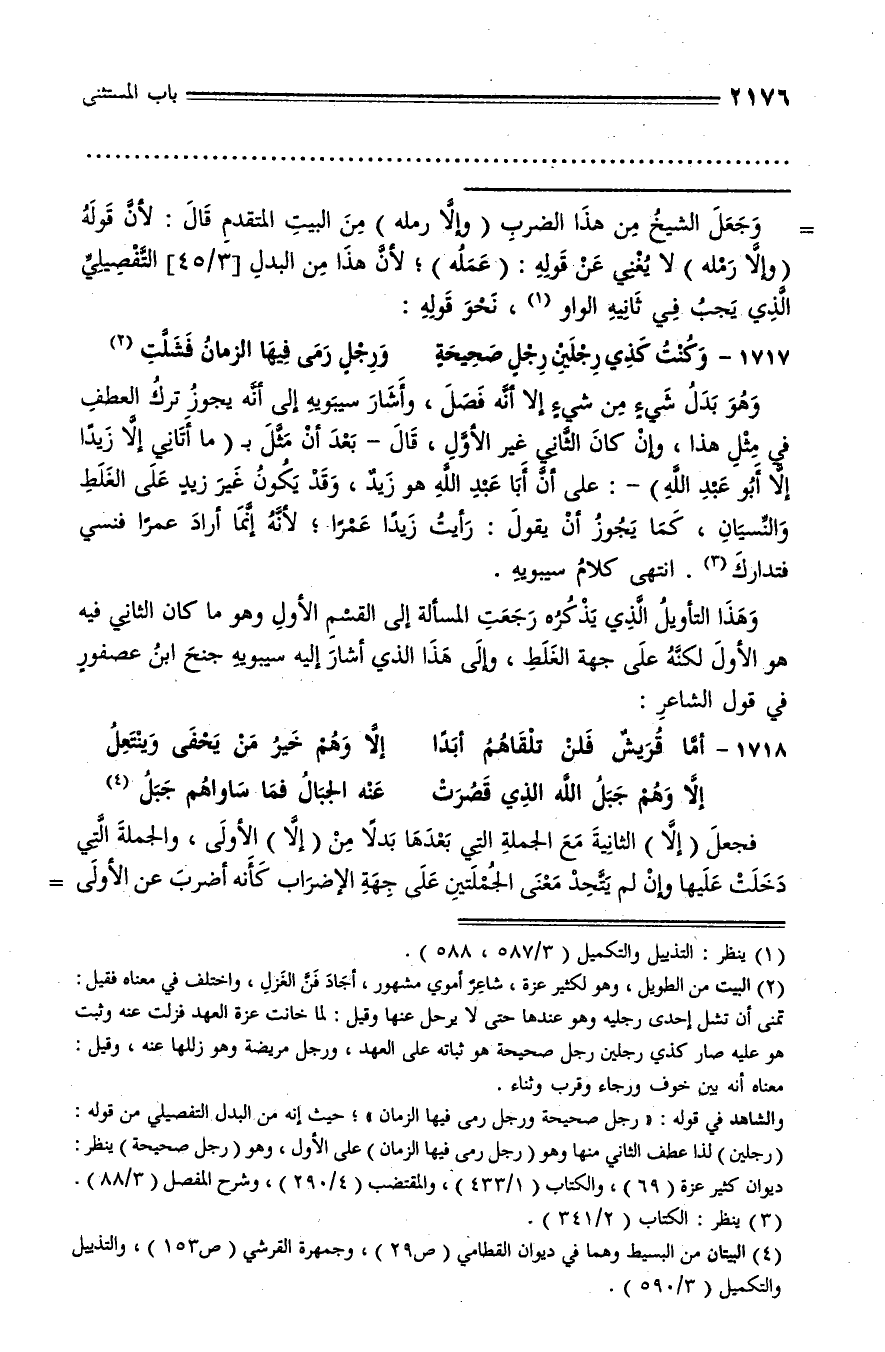 ٢١٧٦ باب المستثنى
= وَجَعَلَ الشيخُ مِن هذَا الضربِ ( وإلَّا رمله ) مِنَ البيتِ المتقدمِ قَالَ : لأنَّ قَولَهُ
( وإلَّا رَمْله ) لا يُغْنِي عَنْ قَولِهِ : ( عَمَلُه ) ؛ لأنَّ هذَا مِن البدلِ [٤٥/٣] التَّفْصِيليِّ
الَّذِي يَجبُ فِي ثَانِيهِ الواو (١) ، نَحْوَ قَولِهِ :
١٧١٧ - وَكُنْتُ كَذِي رِجْلَيْنِ رِجْلٍ صَحِيحَةٍ وَرِجْلٍ رَمَى فِيهَا الزمانُ فَشَلَّتِ (٢)
وَهُوَ بَدَلُ شَيءٍ مِن شيءٍ إلا أنَّه فَصَلَ ، وأَشَارَ سيبَويهِ إلى أنَّه يجوزُ تركُ العطفِ
في مِثْلِ هذا ، وإنْ كانَ الثَّاني غير الأوَّلِ ، قَالَ - بَعْدَ أنْ مَثَّلَ بـ ( ما أتَاني إلَّا زَيدًا
إلَّا أَبُو عَبْدِ اللَّهِ ) - : على أنَّ أَبَا عَبْدِ اللَّهِ هو زَيدٌ ، وَقَدْ يَكُونُ غَيرَ زيدٍ عَلَى الغَلَطِ
وَالنِّسيَانِ ، كَمَا يَجُوزُ أنْ يقولَ : رَأيتُ زَيدًا عَمْرًا ؛ لأنَّهُ إنَّمَا أرادَ عمرًا فنسي
فتداركَ (٣) . انتهى كلامُ سيبويهِ .
وَهَذَا التأويلُ الَّذِي يَذْكُرُه رَجَعَتِ المسألة إلى القسْمِ الأولِ وهو ما كان الثانِي فيه
هو الأولَ لكنَّهُ علَى جهة الغَلَطِ ، وإلَى هَذَا الذي أشارَ إليه سيبويهِ جنحَ ابنُ عصفورٍ
في قول الشاعرِ :
١٧١٨ - أمَّا قُرَيشٌ فَلنْ تلْقَاهُمُ أبَدًا إلَّا وَهُمْ خَيرُ مَنْ يَحْفَى وَيَنْتَعِلُ
إلَّا وَهُمْ جَبَلُ اللَّه الذي قَصُرَتْ عَنْه الجبَالُ فمَا سَاواهُم جَبَلُ (٤)
فجعلَ ( إلَّا ) الثانِيةَ مَعَ الجملةِ التِي بَعْدَهَا بَدلًا مِنْ ( إلَّا ) الأولَى ، والجملةَ الَّتِي
دَخَلَتْ عَلَيها وإنْ لم يَتَّحِدْ مَعْنَى الجُمْلَتينِ عَلَى جِهَةِ الإضرَاب كَأَنه أضربَ عن الأولَى =
(١) ينظر : التذييل والتكميل ( ٥٨٧/٣ ، ٥٨٨ ) .
(٢) البيت من الطويل ، وهو لكثير عزة ، شاعِرٌ أموي مشهور ، أجَادَ فَنَّ الغَزلِ ، واختلف في معناه فقيل :
تمنى أن تشل إحدى رجليه وهو عندها حتى لا يرحل عنها وقيل : لما خانت عزة العهد فزلت عنه وثبت
هو عليه صار كذي رجلين رجل صحيحة هو ثباته على العهد ، ورجل مريضة وهو زللها عنه ، وقيل :
معناه أنه بين خوف ورجاء وقرب وثناء .
والشاهد في قوله : « رجل صحيحة ورجل رمى فيها الزمان » ؛ حيث إنه من البدل التفصيلي من قوله :
( رجلين ) لذا عطف الثاني منها وهو ( رجل رمى فيها الزمان ) على الأول ، وهو ( رجل صحيحة ) ينظر :
ديوان كثير عزة ( ٦٩ ) ، والكتاب ( ٤٣٣/١ ) ، والمقتضب ( ٢٩٠/٤ ) ، وشرح المفصل ( ٨٨/٣ ) .
(٣) ينظر : الكتاب ( ٣٤١/٢ ) .
(٤) البيتان من البسيط وهما في ديوان القطامي ( ص٢٩ ) ، وجمهرة القرشي ( ص١٥٣ ) ، والتذييل
والتكميل ( ٥٩٠/٣ ) .